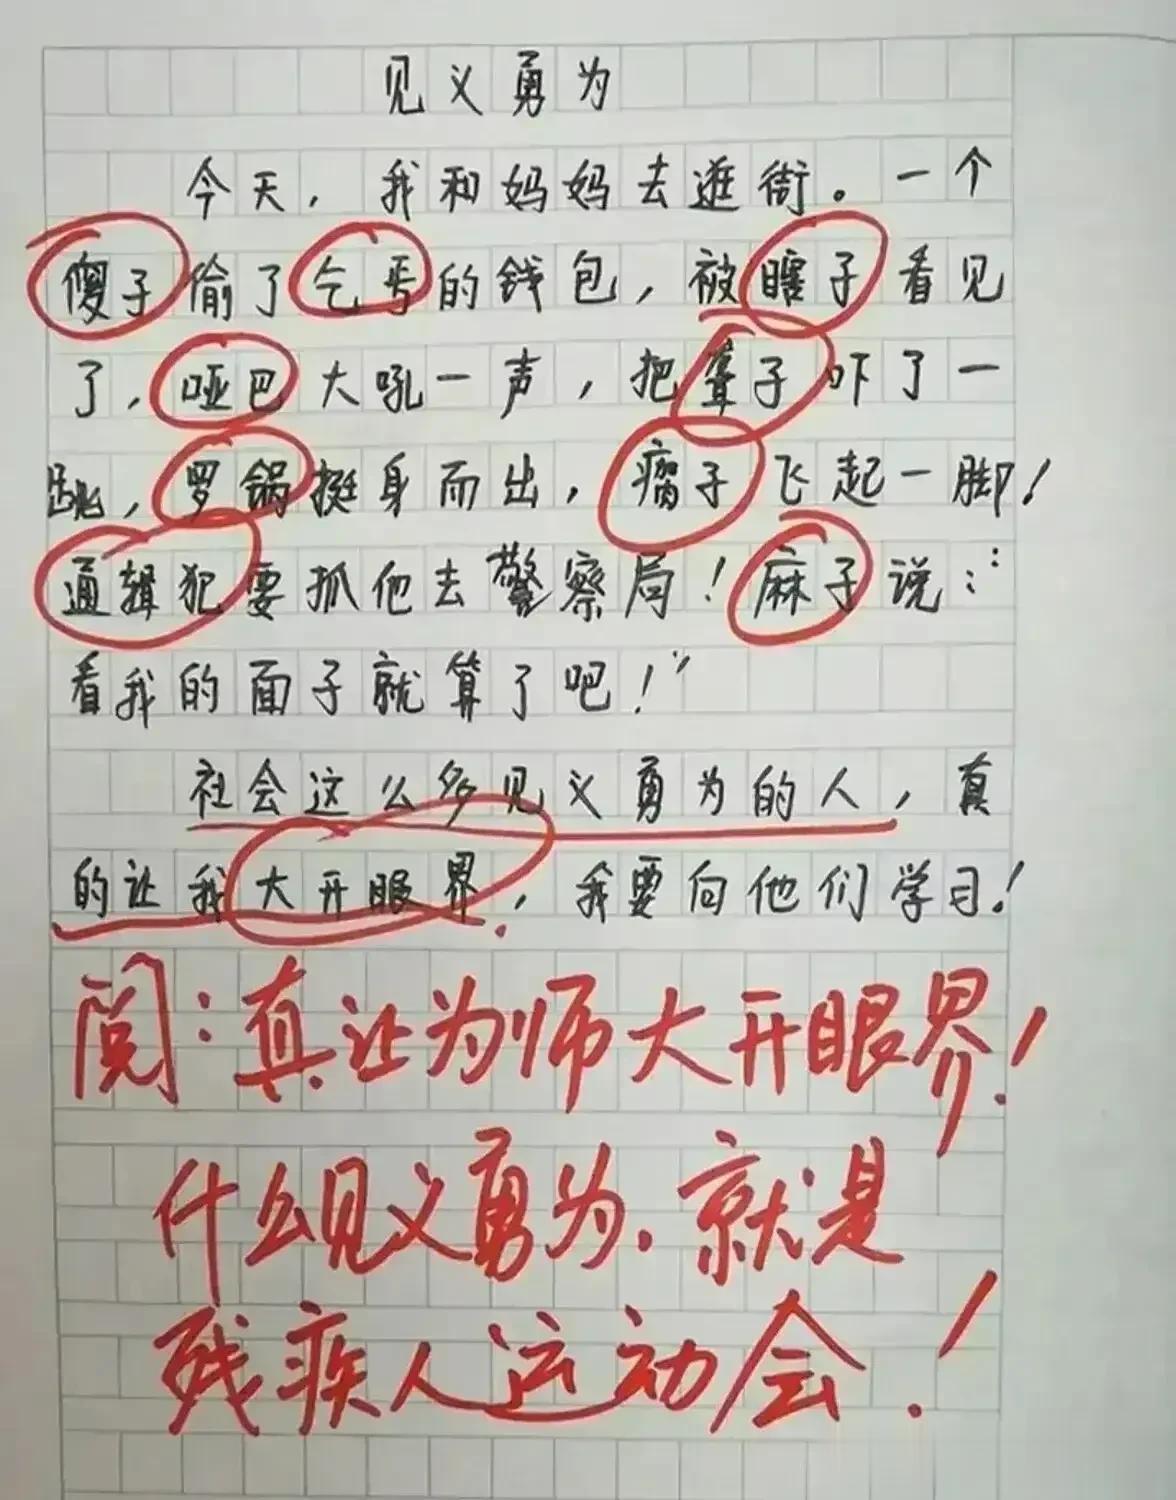 见义勇为
今天，我和妈妈去逛街。一个
傻子偷了乞丐的钱包，被瞎子看见
了，哑巴大吼一声，把聋子吓了一
跳，罗锅挺身而出，瘸子飞起一脚！
通辑犯要抓他去警察局！麻子说：“
看我的面子就算了吧！”
社会这么多见义勇为的人，真
的让我大开眼界，我要向他们学习！
阅：真让为师大开眼界！
什么见义勇为.就是
残疾人运动会！